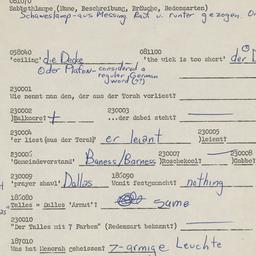 081070
Sabbathlampe (Name, Beschreibung, Bräuche, Redensarten)
Schaweslamp - aus Messing Rait u. runter gezogen.
058040 081100
'ceiling' die Decke 'the wick is too short' der
Oder Plafon - considered a regular German word (?)
230001
Wie nennt man den, der aus der Torah vorliest?
230002 230003
]Balkore[? + ...der dabei steht?
230004 230005
'er liest (aus der Torah)' er leiant ]leient[?
230006 230007 230008
'Gemeindevorstand' Baness/Barness ]Roschekool[? ]Gabbe[
230009 186090
'prayer shawl' Dallas Womit festgemacht? nothing
186080
Talles = Dalles 'Armut'? same
230010
"Der Talles mit 7 Farben" (Redensart bekannt?)
187010
Was hat Menorah geheissen? 7-armige Leuchte